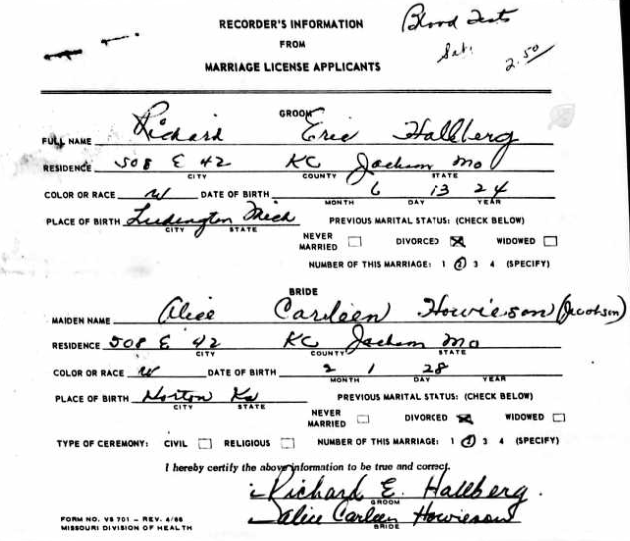 RECORDER'S INFORMATION Blood Tests
FROM Sat. 2.50/
MARRIAGE LICENSE APPLICANTS
GROOM
FULL NAME Richard Eric Hallberg
RESIDENCE 508 E 42 KC Jackson Mo
CITY COUNTY STATE
COLOR OR RACE W DATE OF BIRTH 6 13 24
MONTH DAY YEAR
PLACE OF BIRTH Ludington Mich PREVIOUS MARITAL STATUS: (CHECK BELOW)
CITY STATE
NEVER MARRIED DIVORCED WIDOWED
NUMBER OF THIS MARRIAGE: 1 2 3 4 (SPECIFY)
BRIDE
MAIDEN NAME Alice Carleen Howieson (Jacobson)
RESIDENCE 508 E 42 KC Jackson Mo
CITY COUNTY STATE
COLOR OR RACE W DATE OF BIRTH 2 1 28
MONTH DAY YEAR
PLACE OF BIRTH Norton Ka PREVIOUS MARITAL STATUS: (CHECK BELOW)
CITY STATE
NEVER MARRIED DIVORCED WIDOWED
TYPE OF CEREMONY: CIVIL RELIGIOUS NUMBER OF THIS MARRIAGE: 1 2 3 4 (SPECIFY)
I hereby certify the above information to be true and correct.
Richard E. Hallberg.
GROOM
Alice Carleen Howieson
BRIDE
FORM NO. VS 701 - REV. 4/66
MISSOURI DIVISION OF HEALTH